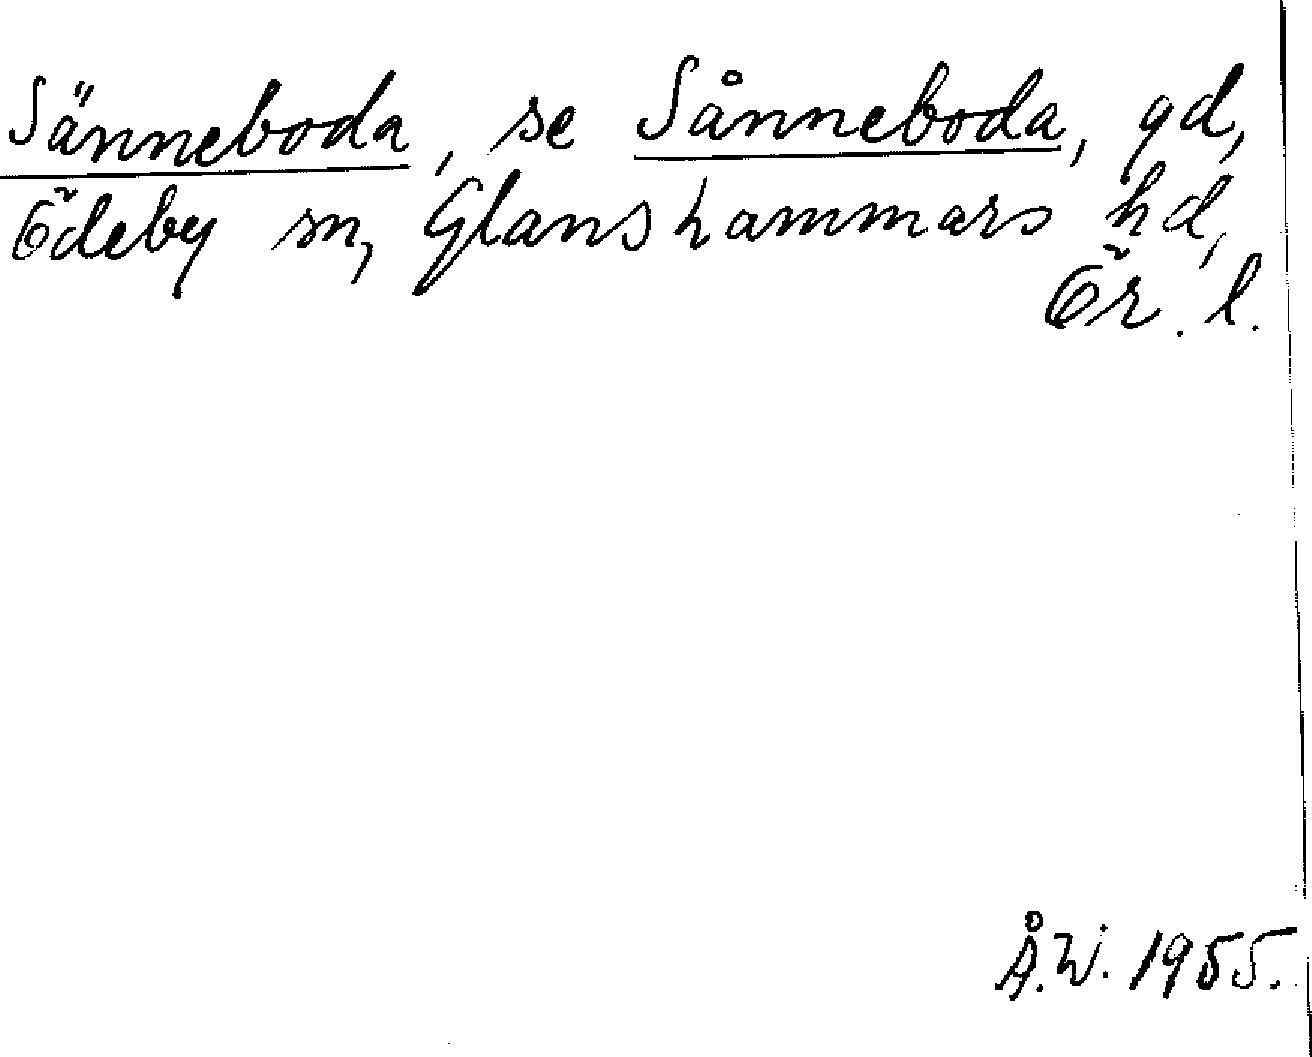 Sänneboda, se Sånneboda, gd,
Ödeby sn, Glanshammars hd,
Ör. l.
Å.W. 1955.